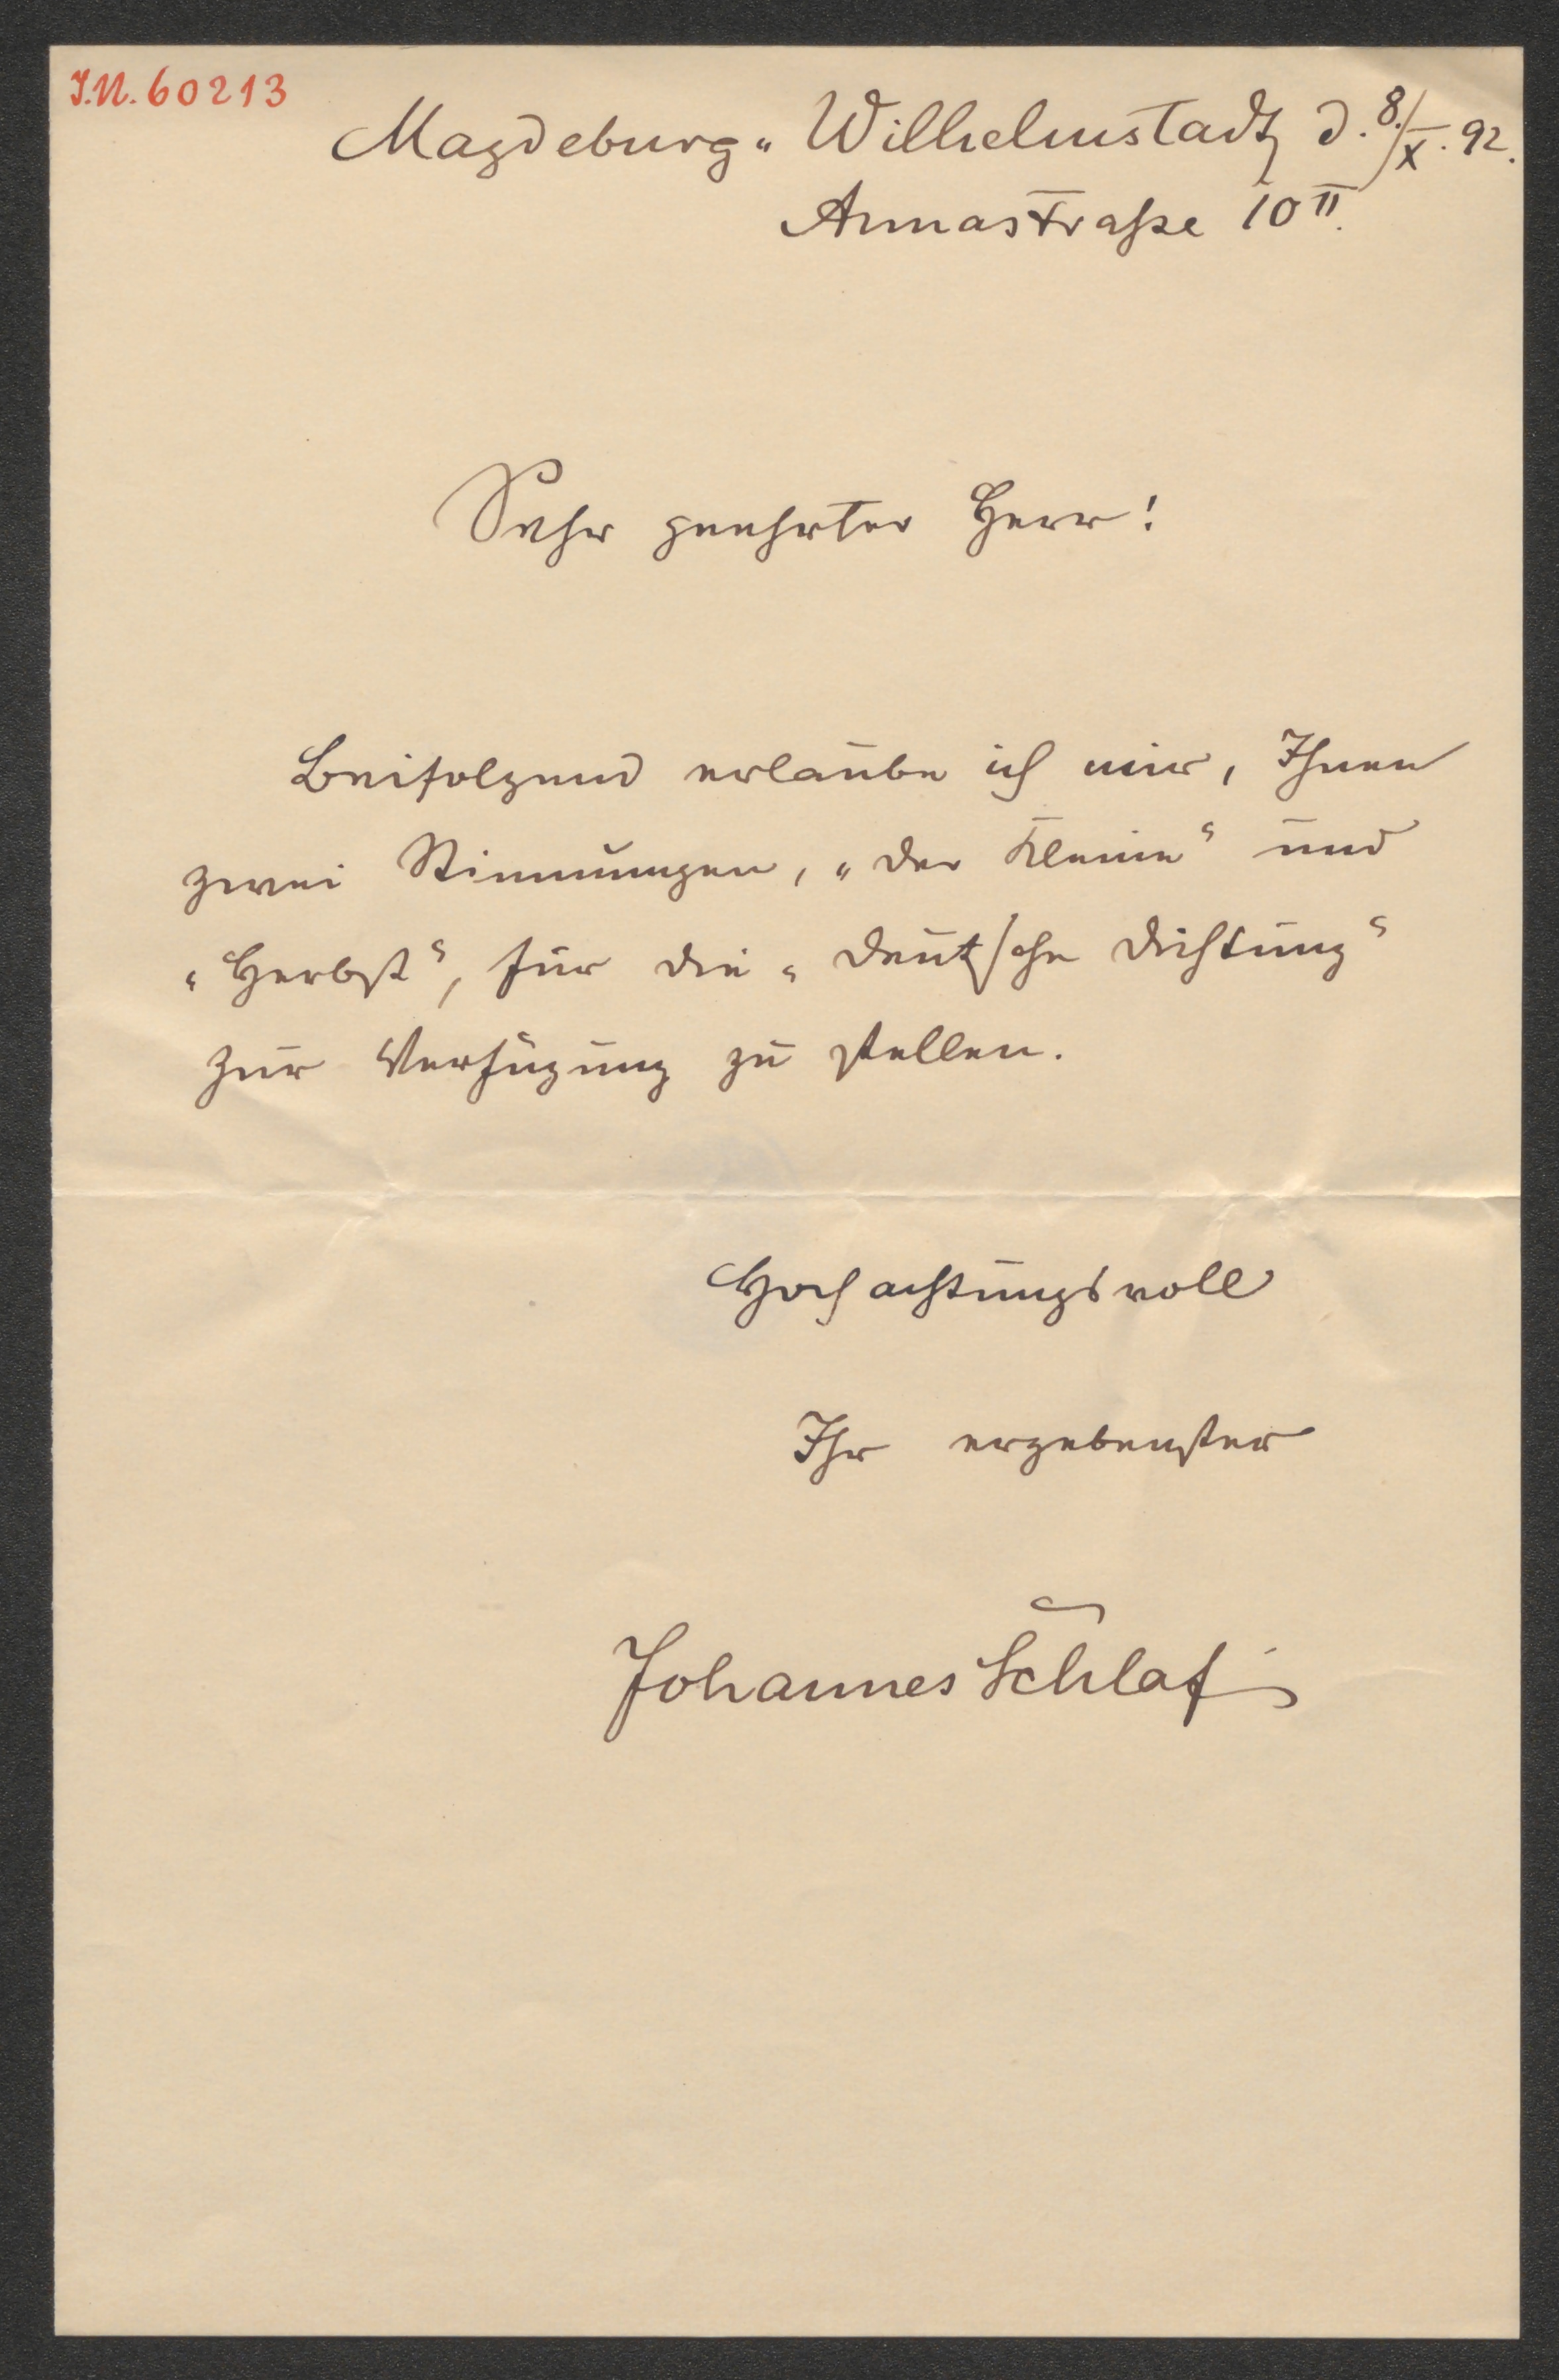 I.N. 60213
Magdeburg-Wilhelmstadt, d. 8./X. 92.
Annastraße 10 II.
Sehr geehrter Herr!
Beifolgend erlaube ich mir, Ihnen
zwei Stimmungen, „Der Kleine“ und
„Herbst“, für die „Deutsche Dichtung“
zur Verfügung zu stellen.
Hochachtungsvoll
Ihr ergebenster
Johannes Schlaf